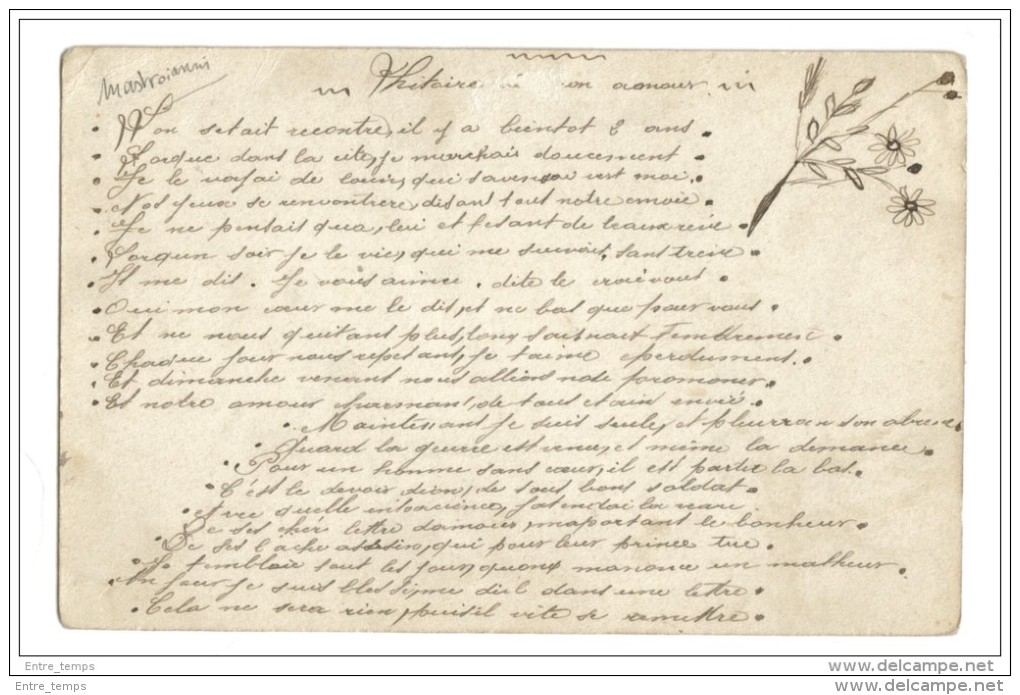 Mastroianni
L'hitoire mon amour
L'on setait recontre, il y a bientot 2 ans
Lorque dans la cite, je marchais doucement
Je le voyai de qui vers moi
Nos yeux se rencontrere, disant tout notre emoie
Je ne pensait qua, lui et fesant de beaux reve
Lorqun soir je le vie, qui me suivait, sans treve
Il me dit. Je vous aime. dite le croiévous
Oui mon cœur me le dit, et ne bat que pour vous
Et ne nous quitant plus, lon saisnait Tendrement
Chaque jour nous repetant, je taime eperdument
Et dimanche venant nous allions nous promoner
Et notre amour charmant, de tous etais envié
Maintenant je suis seule, et pleurran son absence
Quand la guerre est venue, et même la demance
Pour un homme sans cœur, il est partie la bas
C'est le devoir dion, de tous bons soldat
Avec quelle inpacience, jatendai la
De ses cher lettre damour, maportant le bonheur
De ses lache assasins, qui pour leur prince tue
Je temblair tout les jour, quon manonce un malheur
Un jour je suis blessé, me dit dans une lettre
Cela ne sera rien, puisil vite se remettre
Entre_temps
www.delcampe.net
Entre_temps
www.delcampe.net